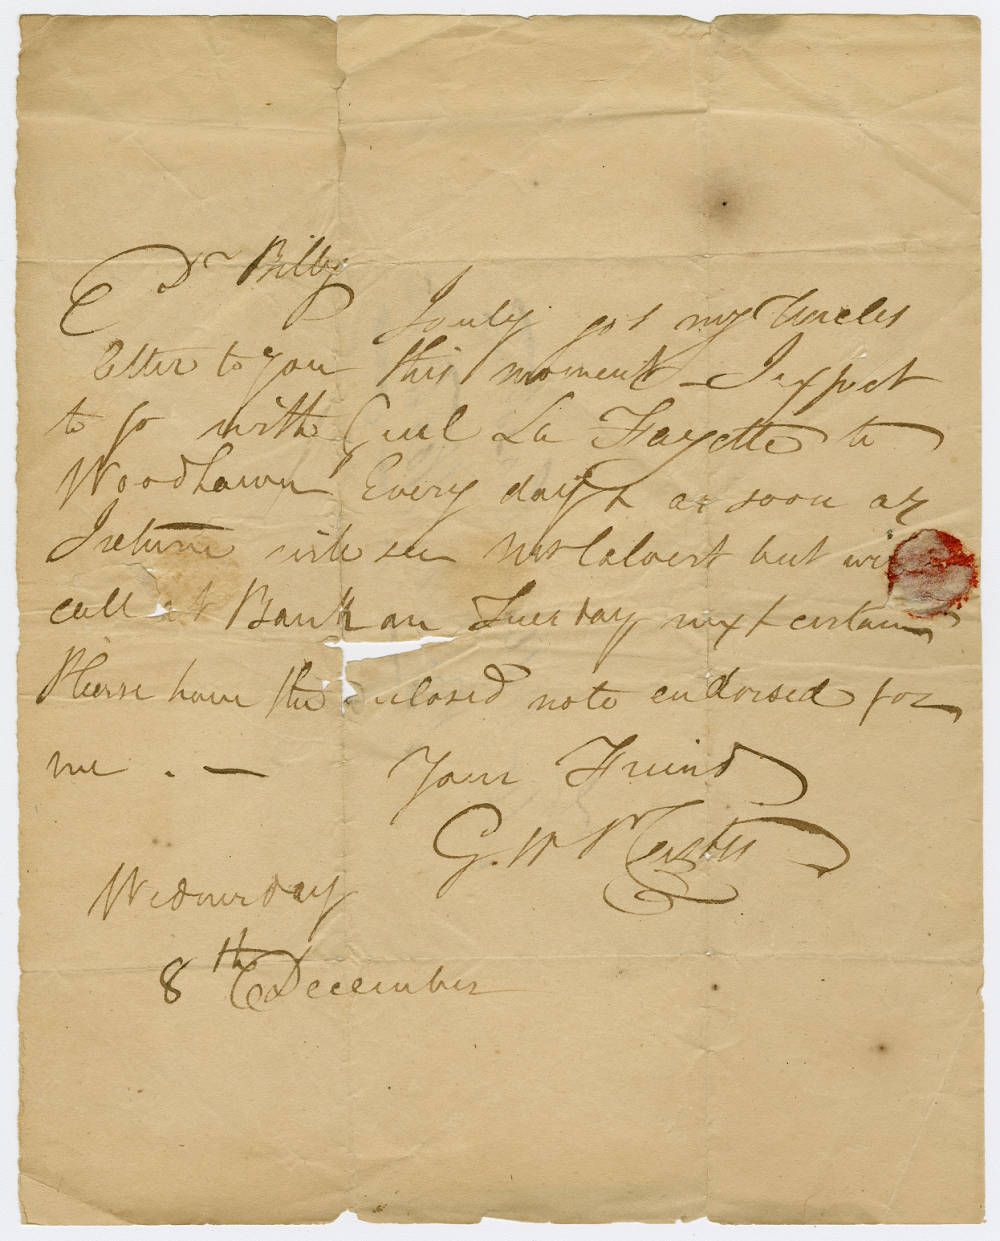 Dr Billy
I only got my Uncles
letter to you this moment - I expect
to go with Genl La Fayette to
Woodlawn Every day & as soon as
I return will see Mr Calvert but will
call at Bank on Tuesday next certain
Please have the enclosed note endorsed for
me . -
Your Friend
G. W P Custis
Wednesday
8th December